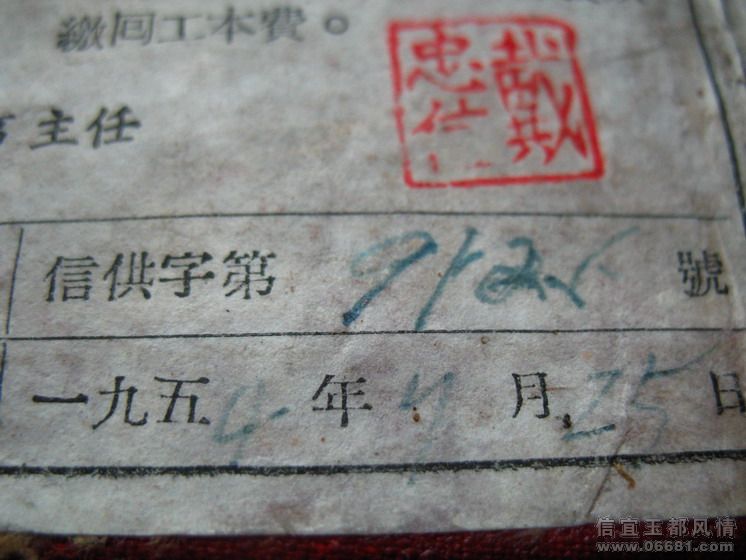 繳回工本費。
主任
戴忠仁
信供字第 9125 號
一九五4年4月25日
信宜玉都风情
www.06681.com